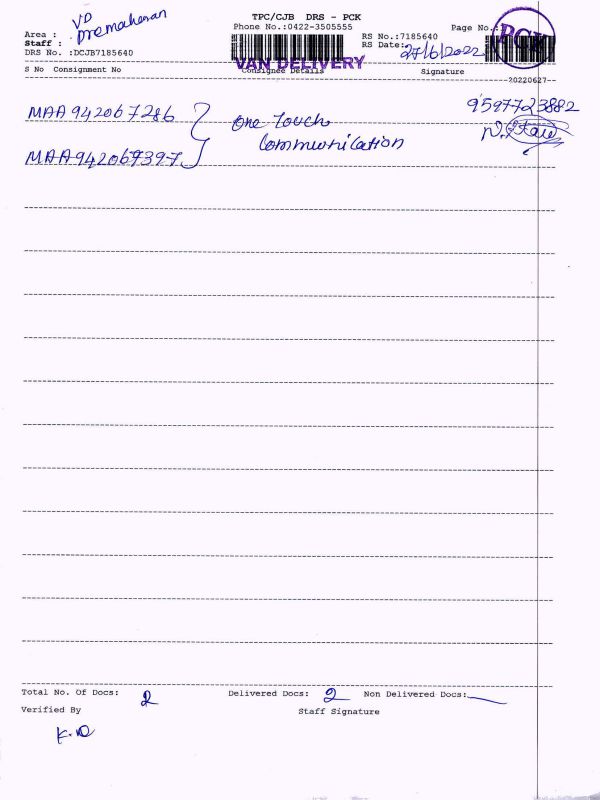 TPC/CJB DRS - PCK
Phone No.:0422-3505555
Page No.:
Area : VD
Staff :
DRS No. :DCJB7185640
RS No.:7185640
RS Date: 27/6/2022
VAN DELIVERY
PCK
S No Consignment No Consignee Details Signature
20220627
MAA942067286
MAA942067397
One Touch
Communication
9597723882
Total No. Of Docs: 2 Delivered Docs: 2 Non Delivered Docs:
Verified By Staff Signature